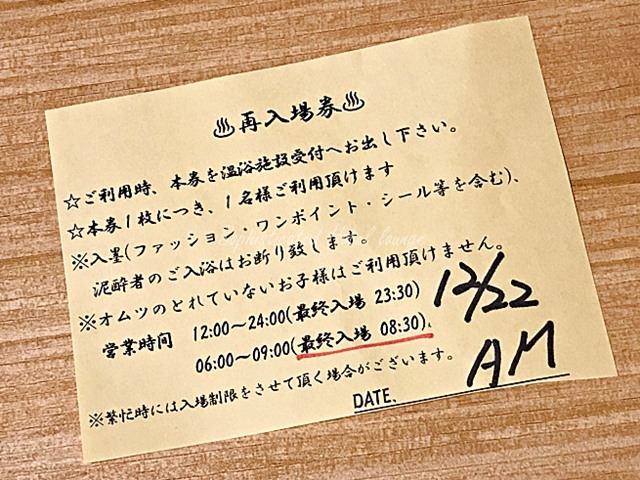 ♨再入場券♨
☆ご利用時、本券を温浴施設受付へお出し下さい。
☆本券1枚につき、1名様ご利用頂けます
※入墨(ファッション・ワンポイント・シール等を含む)、
泥酔者のご入浴はお断り致します。
※オムツのとれていないお子様はご利用頂けません。
営業時間 12:00〜24:00(最終入場 23:30)
06:00〜09:00(最終入場 08:30)
12/22
AM
※繁忙時には入場制限をさせて頂く場合がございます。
DATE.